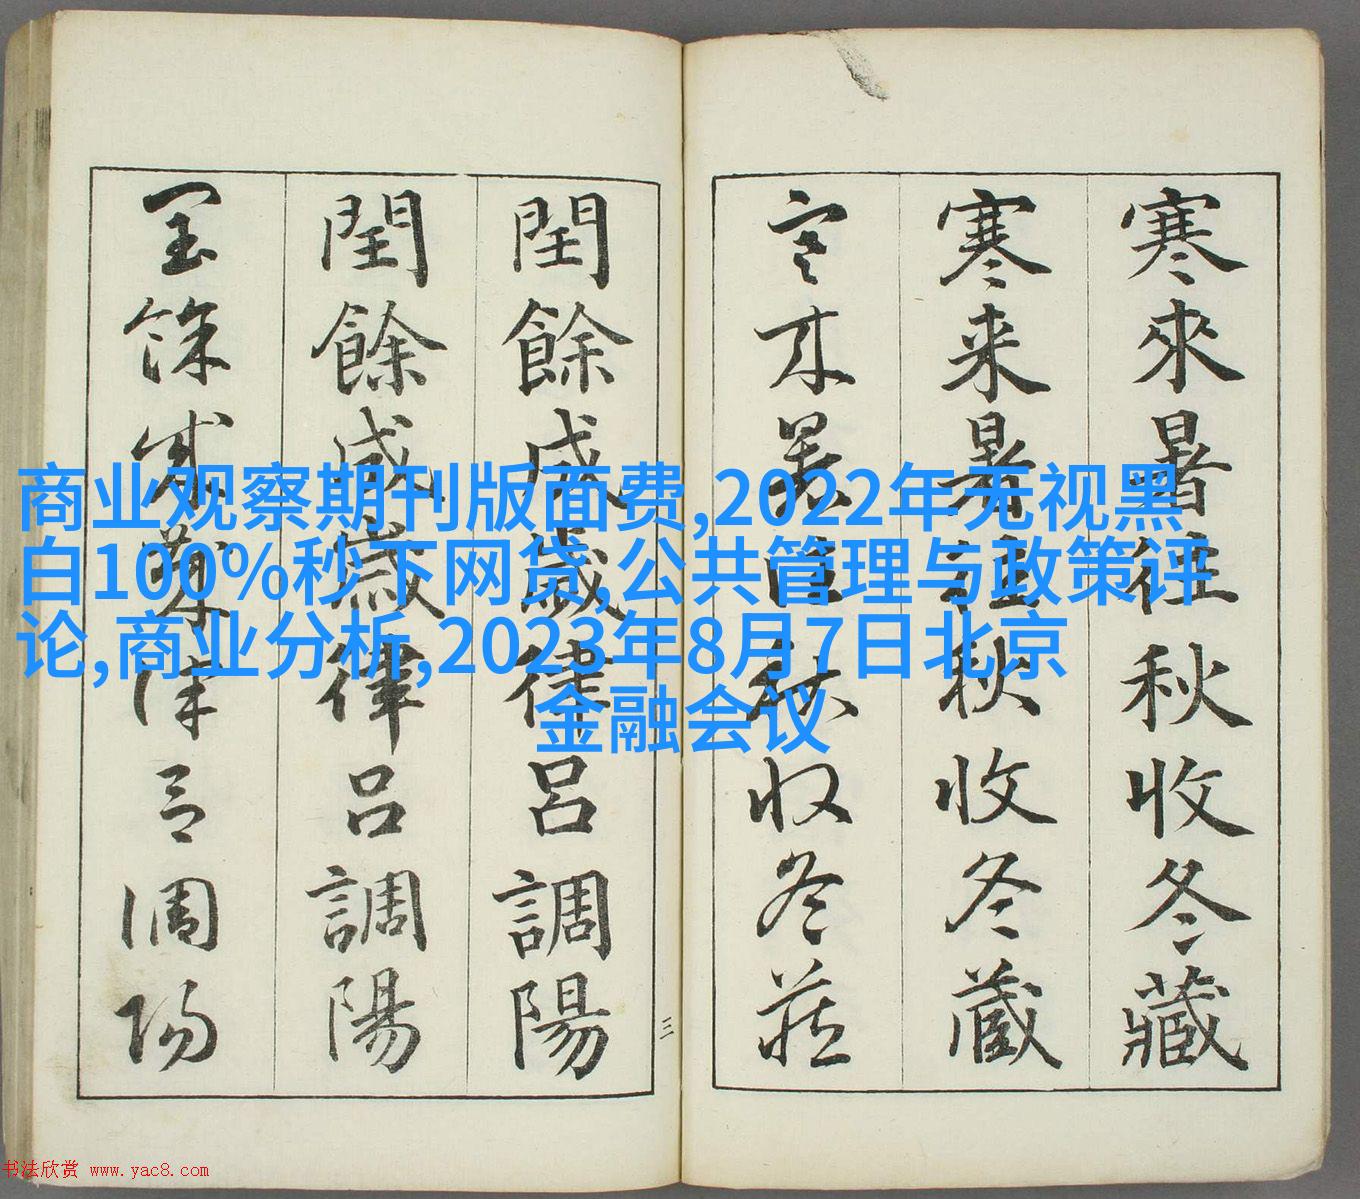 寒來暑往秋收冬藏
寒来暑往秋收冬蔵
寒来暑往秋收冬藏
閏餘成歲律呂調陽
閏餘成歲律呂調陽
閏餘成歲律呂調陽
三
商业观察期刊版面费,2022年无视黑
白100%秒下网贷,公共管理与政策评
论,商业分析,2023年8月7日北京
金融会议
书法欣赏 www.yac8.com